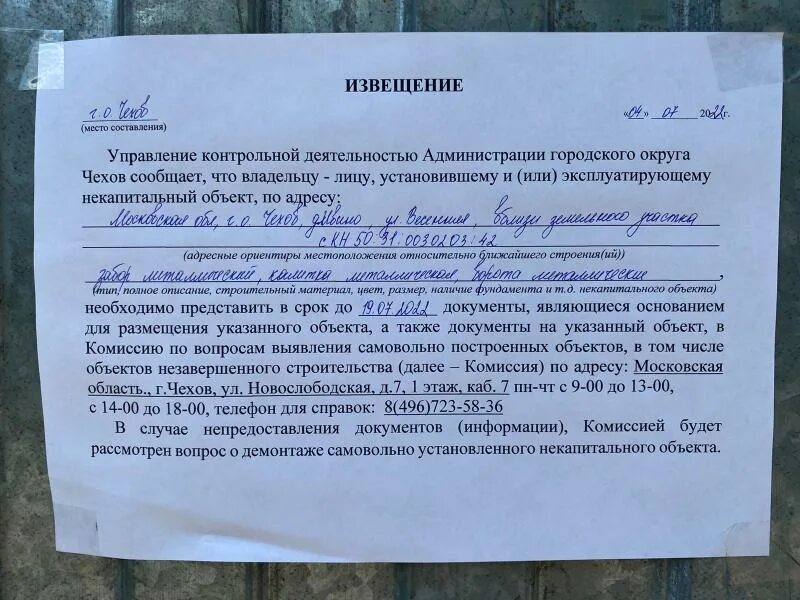 ИЗВЕЩЕНИЕ
г.о. Чехов «04» 07 2022г.
(место составления)
Управление контрольной деятельностью Администрации городского округа
Чехов сообщает, что владельцу - лицу, установившему и (или) эксплуатирующему
некапитальный объект, по адресу:
Московская обл, г.о. Чехов, ул. Весенняя, вблизи земельного участка
с КН 50:31:0030203:42
(адресные ориентиры местоположения относительно ближайшего строения(ий))
забор металлический, калитка металлическая, ворота металлические,
(тип, полное описание, строительный материал, цвет, размер, наличие фундамента и т.д. некапитального объекта)
необходимо представить в срок до 19.07.2022 документы, являющиеся основанием
для размещения указанного объекта, а также документы на указанный объект, в
Комиссию по вопросам выявления самовольно построенных объектов, в том числе
объектов незавершенного строительства (далее – Комиссия) по адресу: Московская
область., г.Чехов, ул. Новослободская, д.7, 1 этаж, каб. 7 пн-чт с 9-00 до 13-00,
с 14-00 до 18-00, телефон для справок: 8(496)723-58-36
В случае непредоставления документов (информации), Комиссией будет
рассмотрен вопрос о демонтаже самовольно установленного некапитального объекта.